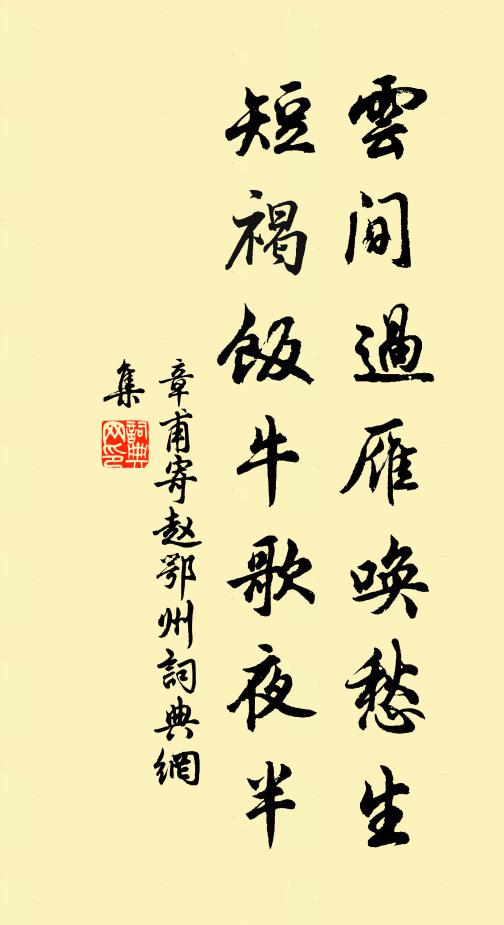 雲間過雁喚愁生
短褐飯牛歌夜半
章甫寄赵鄂州詞典網
集
詞典
网印